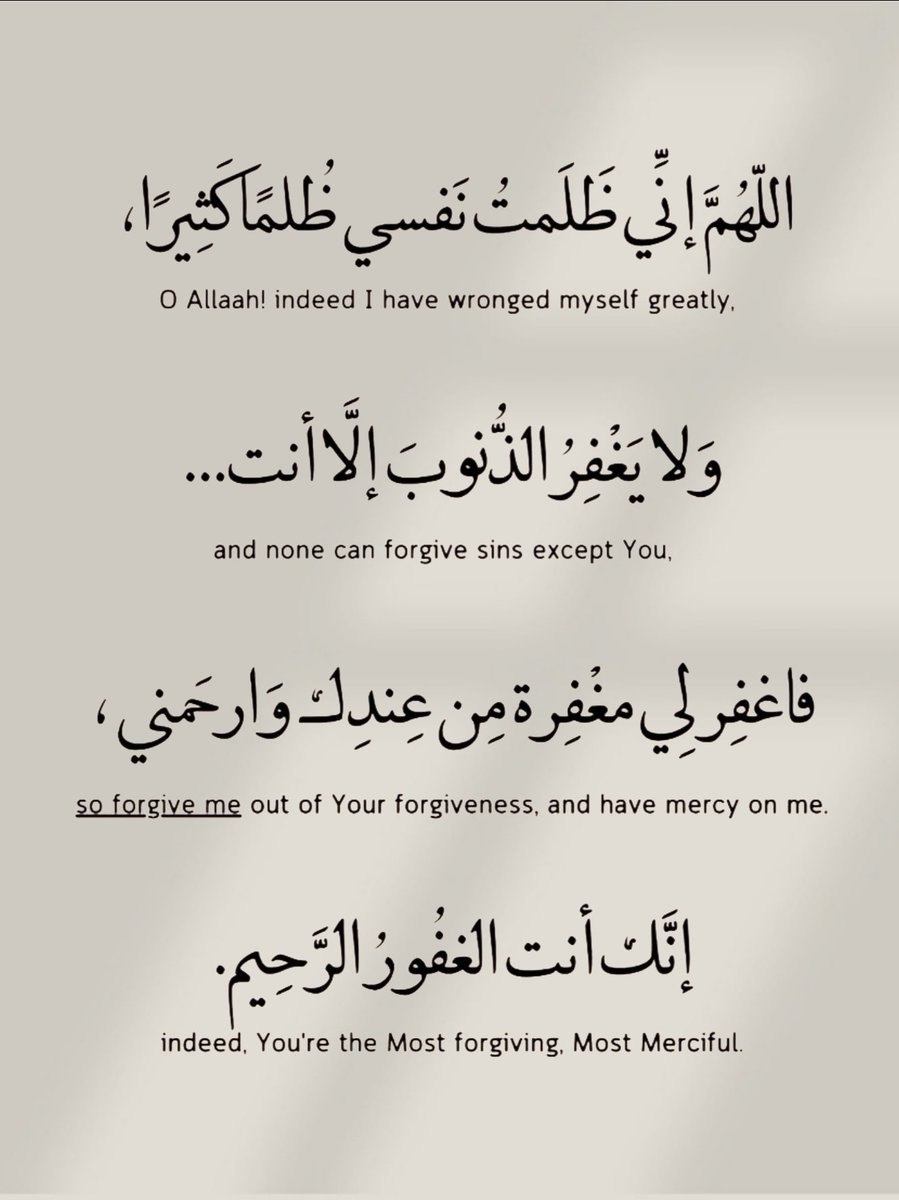 اللّهُمَّ إنِّي ظَلَمتُ نَفسي ظُلمًا كَثِيرًا،
O Allaah! indeed I have wronged myself greatly,
وَلا يَغْفِرُ الذُّنوبَ إلَّا أنت...
and none can forgive sins except You,
فاغفِر لِي مغْفِرة مِن عِندِك وَارحَمني ،
so forgive me out of Your forgiveness, and have mercy on me.
إنَّك أنت الغفُورُ الرَّحِيم.
indeed, You're the Most forgiving, Most Merciful.